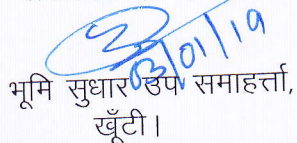 03/01/19
भूमि सुधार उप समाहर्त्ता,
खूँटी।